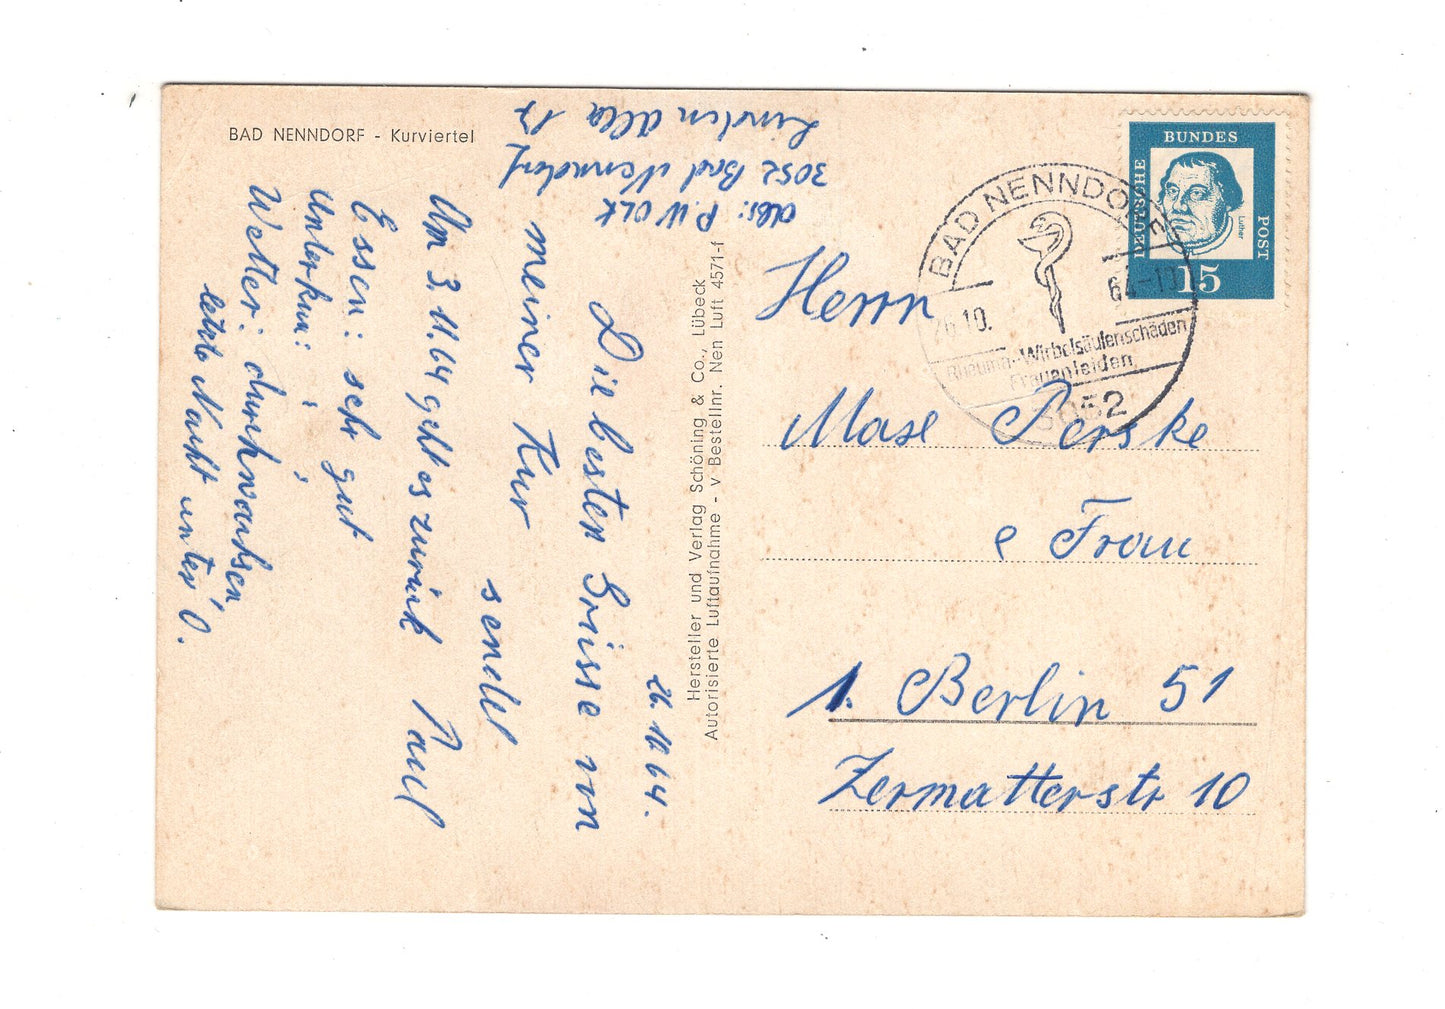 BAD NENNDORF - Kurviertel
Abs.: P. Wolk
3052 Bad Nenndorf
Linden allee 17
26.10.64.
Die besten Grüsse von
meiner Kur
sendet
Paul
Am 3.11.64 geht es zurück
Essen: sehr gut
Unterkun: " "
Wetter: durchwachsen,
letzte Nacht unter O.
Hersteller und Verlag Schöning & Co., Lübeck
Autorisierte Luftaufnahme - v Bestellnr. Nen Luft 4571-f
DEUTSCHE
BUNDES
POST
Luther
15
BAD NENNDORF
26.10.
64-19
Rheuma-Wirbelsäulenschäden
Frauenleiden
3052
Herrn
Max Perske
e Frau
1. Berlin 51
Zermatterstr 10